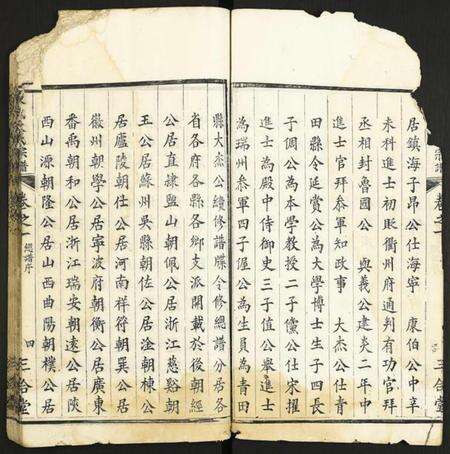 居鎮海子昂公仕海寧　康伯公中辛
未科進士初貶衢州府通判有功官拜
丞相封魯國公　與義公建炎二年中
進士官拜參軍知政事　大杰公仕青
田縣令延賞公為大學博士生子四長
子倜公為本學教授二子黨公仕宋擢
進士為殿中侍御史三子值公舉進士
為瑞州參軍四子偓公為生員為青田
縣大杰公續修譜牒今修總譜分居各
省各府各縣各鄉支派開載於後朝經
公居直隸盬山朝佩公居浙江慈谿朝
王公居蘇州吳縣朝佐公居淦朝棟公
居廬陵朝仕公居河南祥符朝巽公居
徽州朝學公居寧波府朝衡公居廣東
番禹朝和公居浙江瑞安朝遠公居陝
西山源朝隆公居山西曲陽朝樸公居
宗譜
卷之一
三合堂
氏宗譜
卷之一
總譜序
四
三合堂